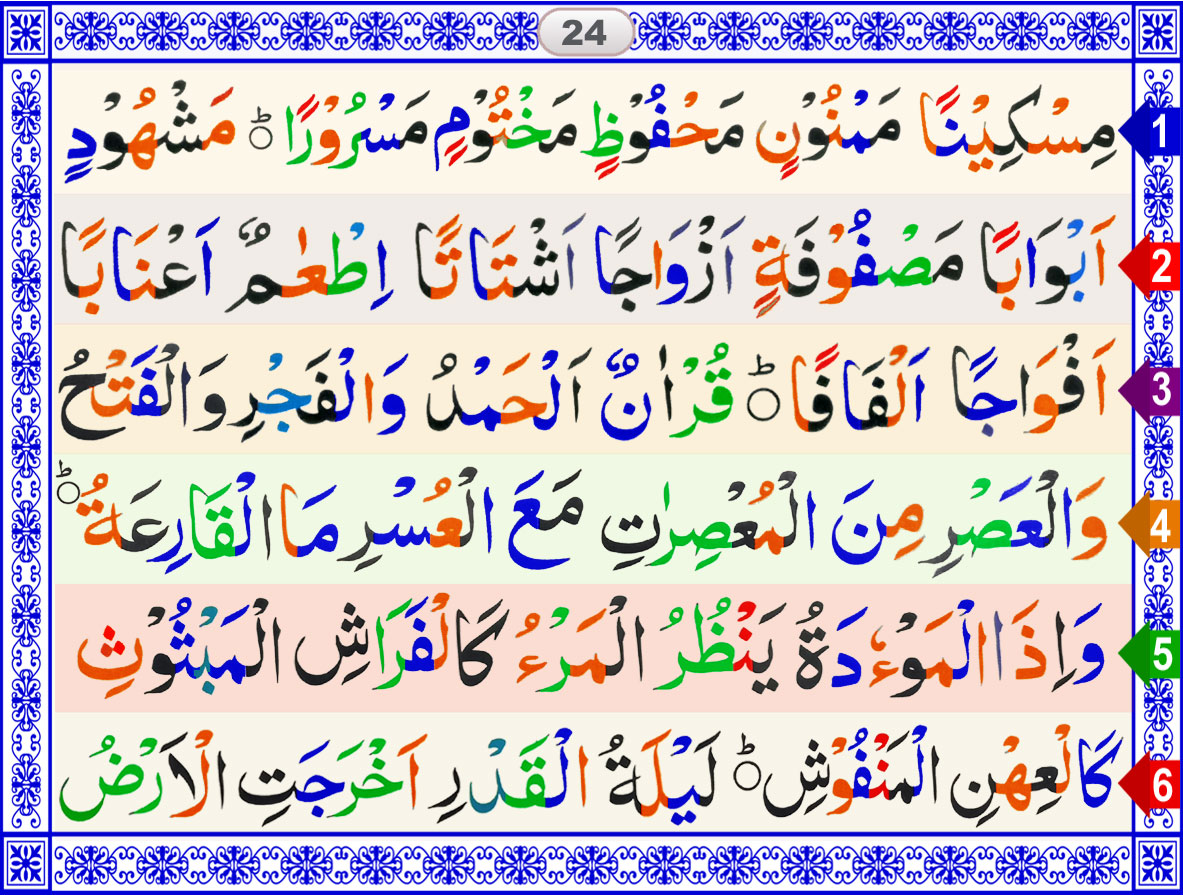 24
1 مِسْكِيْنًا مَمْنُوْنٍ مَحْفُوْظٍ مَخْتُوْمٍ مَسْرُوْرًا ؕ مَشْهُوْدٍ
2 اَبْوَابًا مَصْفُوْفَةٍ اَزْوَاجًا اَشْتَاتًا اِطْعٰمٌ اَعْنَابًا
3 اَفْوَاجًا اَلْفَافًا ؕ قُرْاٰنٌ اَلْحَمْدُ وَالْفَجْرِ وَالْفَتْحُ
4 وَالْعَصْرِ مِنَ الْمُعْصِرٰتِ مَعَ الْعُسْرِ مَا الْقَارِعَةُ ؕ
5 وَاِذَا الْمَوْءٗدَةُ يَنْظُرُ الْمَرْءُ كَالْفَرَاشِ الْمَبْثُوْثِ
6 كَالْعِهْنِ الْمَنْفُوْشِ ؕ لَيْلَةُ الْقَدْرِ اَخْرَجَتِ الْاَرْضُ